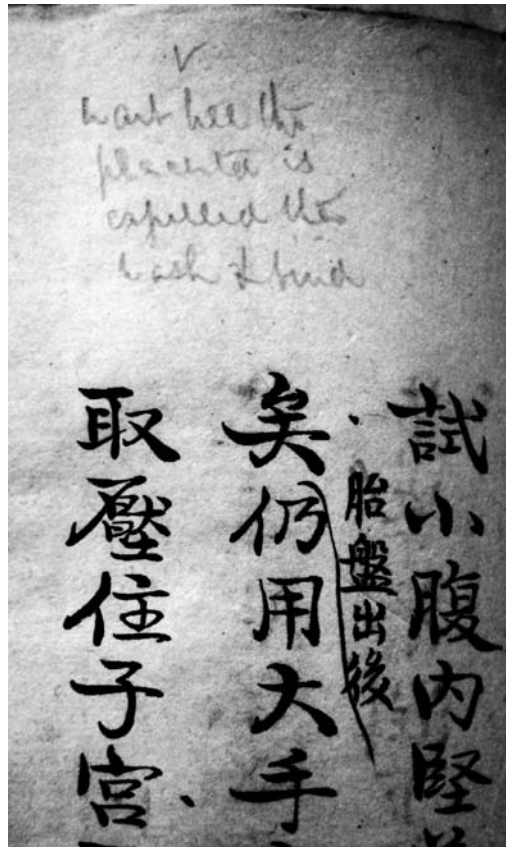 wait till the
placenta is
expelled then
wash & bind
試小腹内堅
胎盤出後
矣仍用大手
取壓住子宫、